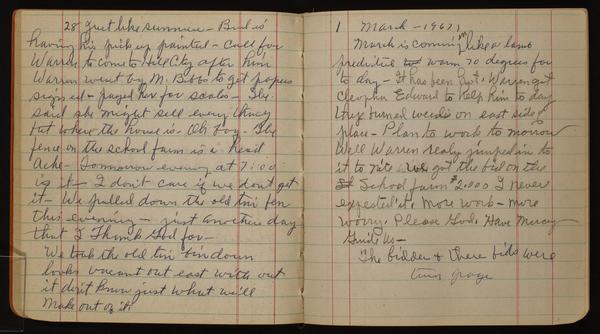 28 Just like summer - Bud is
having his pick up painted - Call for
Warren to come to Hill City after him
Warren went by M. Bobs to get papers
signed - payed her for scales - She
said she might sell every thing
but where the house is. Oh boy - The
fence on the school farm is a head
Ache - Tomorrow evening at 7:00
is it - I don't care if we don't get
it - We pulled down the old tin bin
this evening - just another day
that I Thank God for -
We took the old tin bin down
looks vacant out east with out
it don't know just what we'll
make out of it.
1 March - 1967
March is coming in like a lamb
predicted warm 70 degrees for
to day - It has been hot. Warren got
Edward to help him to day
they burned weeds on east side of
place - Plan to work to morrow
Well Warren realy jumped in to
it to nite we got the bid on the
School farm $2,000 I never
expected it. More work - more
worry. Please God. Have Mercy
Guide Us -
The bidder & there bids were
turn page